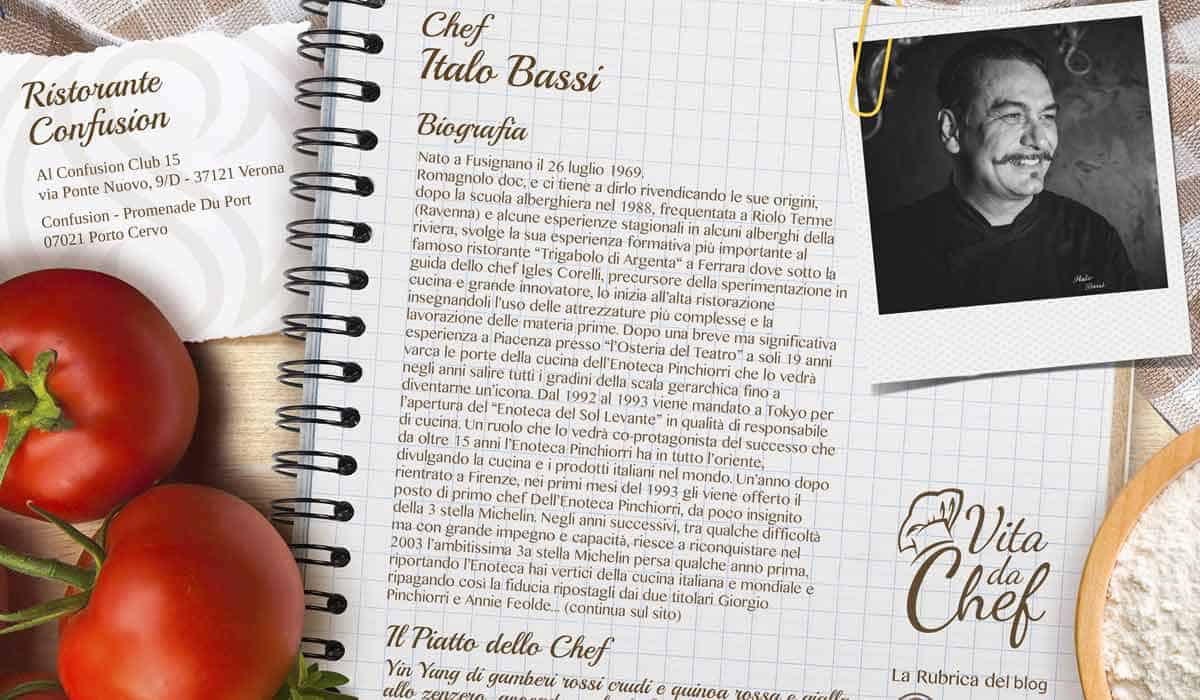 Ristorante
Confusion
Al Confusion Club 15
via Ponte Nuovo, 9/D - 37121 Verona
Confusion - Promenade Du Port
07021 Porto Cervo
Chef
Italo Bassi
Biografia
Nato a Fusignano il 26 luglio 1969.
Romagnolo doc, e ci tiene a dirlo rivendicando le sue origini,
dopo la scuola alberghiera nel 1988, frequentata a Riolo Terme
(Ravenna) e alcune esperienze stagionali in alcuni alberghi della
riviera, svolge la sua esperienza formativa più importante al
famoso ristorante “Trigabolo di Argenta“ a Ferrara dove sotto la
guida dello chef Igles Corelli, precursore della sperimentazione in
cucina e grande innovatore, lo inizia all’alta ristorazione
insegnandoli l’uso delle attrezzature più complesse e la
lavorazione delle materia prime. Dopo una breve ma significativa
esperienza a Piacenza presso “l’Osteria del Teatro” a soli 19 anni
varca le porte della cucina dell’Enoteca Pinchiorri che lo vedrà
negli anni salire tutti i gradini della scala gerarchica fino a
diventarne un’icona. Dal 1992 al 1993 viene mandato a Tokyo per
l’apertura del “Enoteca del Sol Levante” in qualità di responsabile
di cucina. Un ruolo che lo vedrà co-protagonista del successo che
da oltre 15 anni l’Enoteca Pinchiorri ha in tutto l’oriente,
divulgando la cucina e i prodotti italiani nel mondo. Un’anno dopo
rientrato a Firenze, nei primi mesi del 1993 gli viene offerto il
posto di primo chef Dell’Enoteca Pinchiorri, da poco insignito
della 3 stella Michelin. Negli anni successivi, tra qualche difficoltà
ma con grande impegno e capacità, riesce a riconquistare nel
2003 l’ambitissima 3a stella Michelin persa qualche anno prima,
riportando l’Enoteca hai vertici della cucina italiana e mondiale e
ripagando così la fiducia ripostagli dai due titolari Giorgio
Pinchiorri e Annie Feolde... (continua sul sito)
Il Piatto dello Chef
Yin Yang di gamberi rossi crudi e quinoa rossa e gialla
allo zenzero,
Italo
Bassi
Vita
da
Chef
La Rubrica del blog